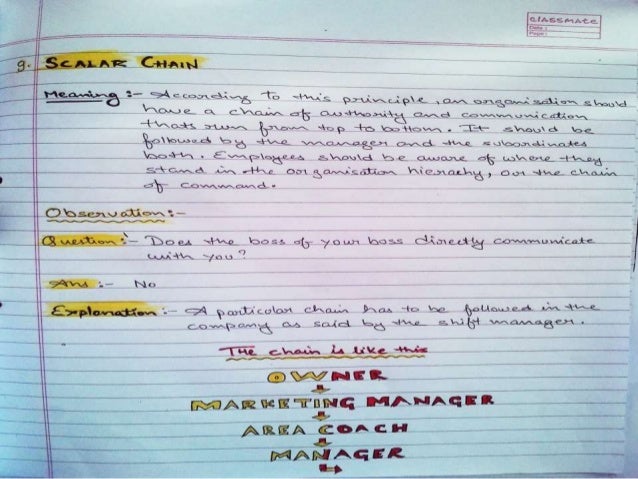 classmate
Date :
Page :
9. SCALAR CHAIN
Meaning :- According to this principle, an organisation should
have a chain of authority and communication
thats run from top to bottom. It should be
followed by the manager and the subordinates
both. Employees should be aware of where they
stand in the organisation hierachy, or the chain
of command.
Observation :-
Question :- Does the boss of your boss directly communicate
with you?
Ans :- No
Explanation :- A particular chain has to be followed in the
company as said by the shift manager.
The chain is like this
OWNER
MARKETING MANAGER
AREA COACH
MANAGER